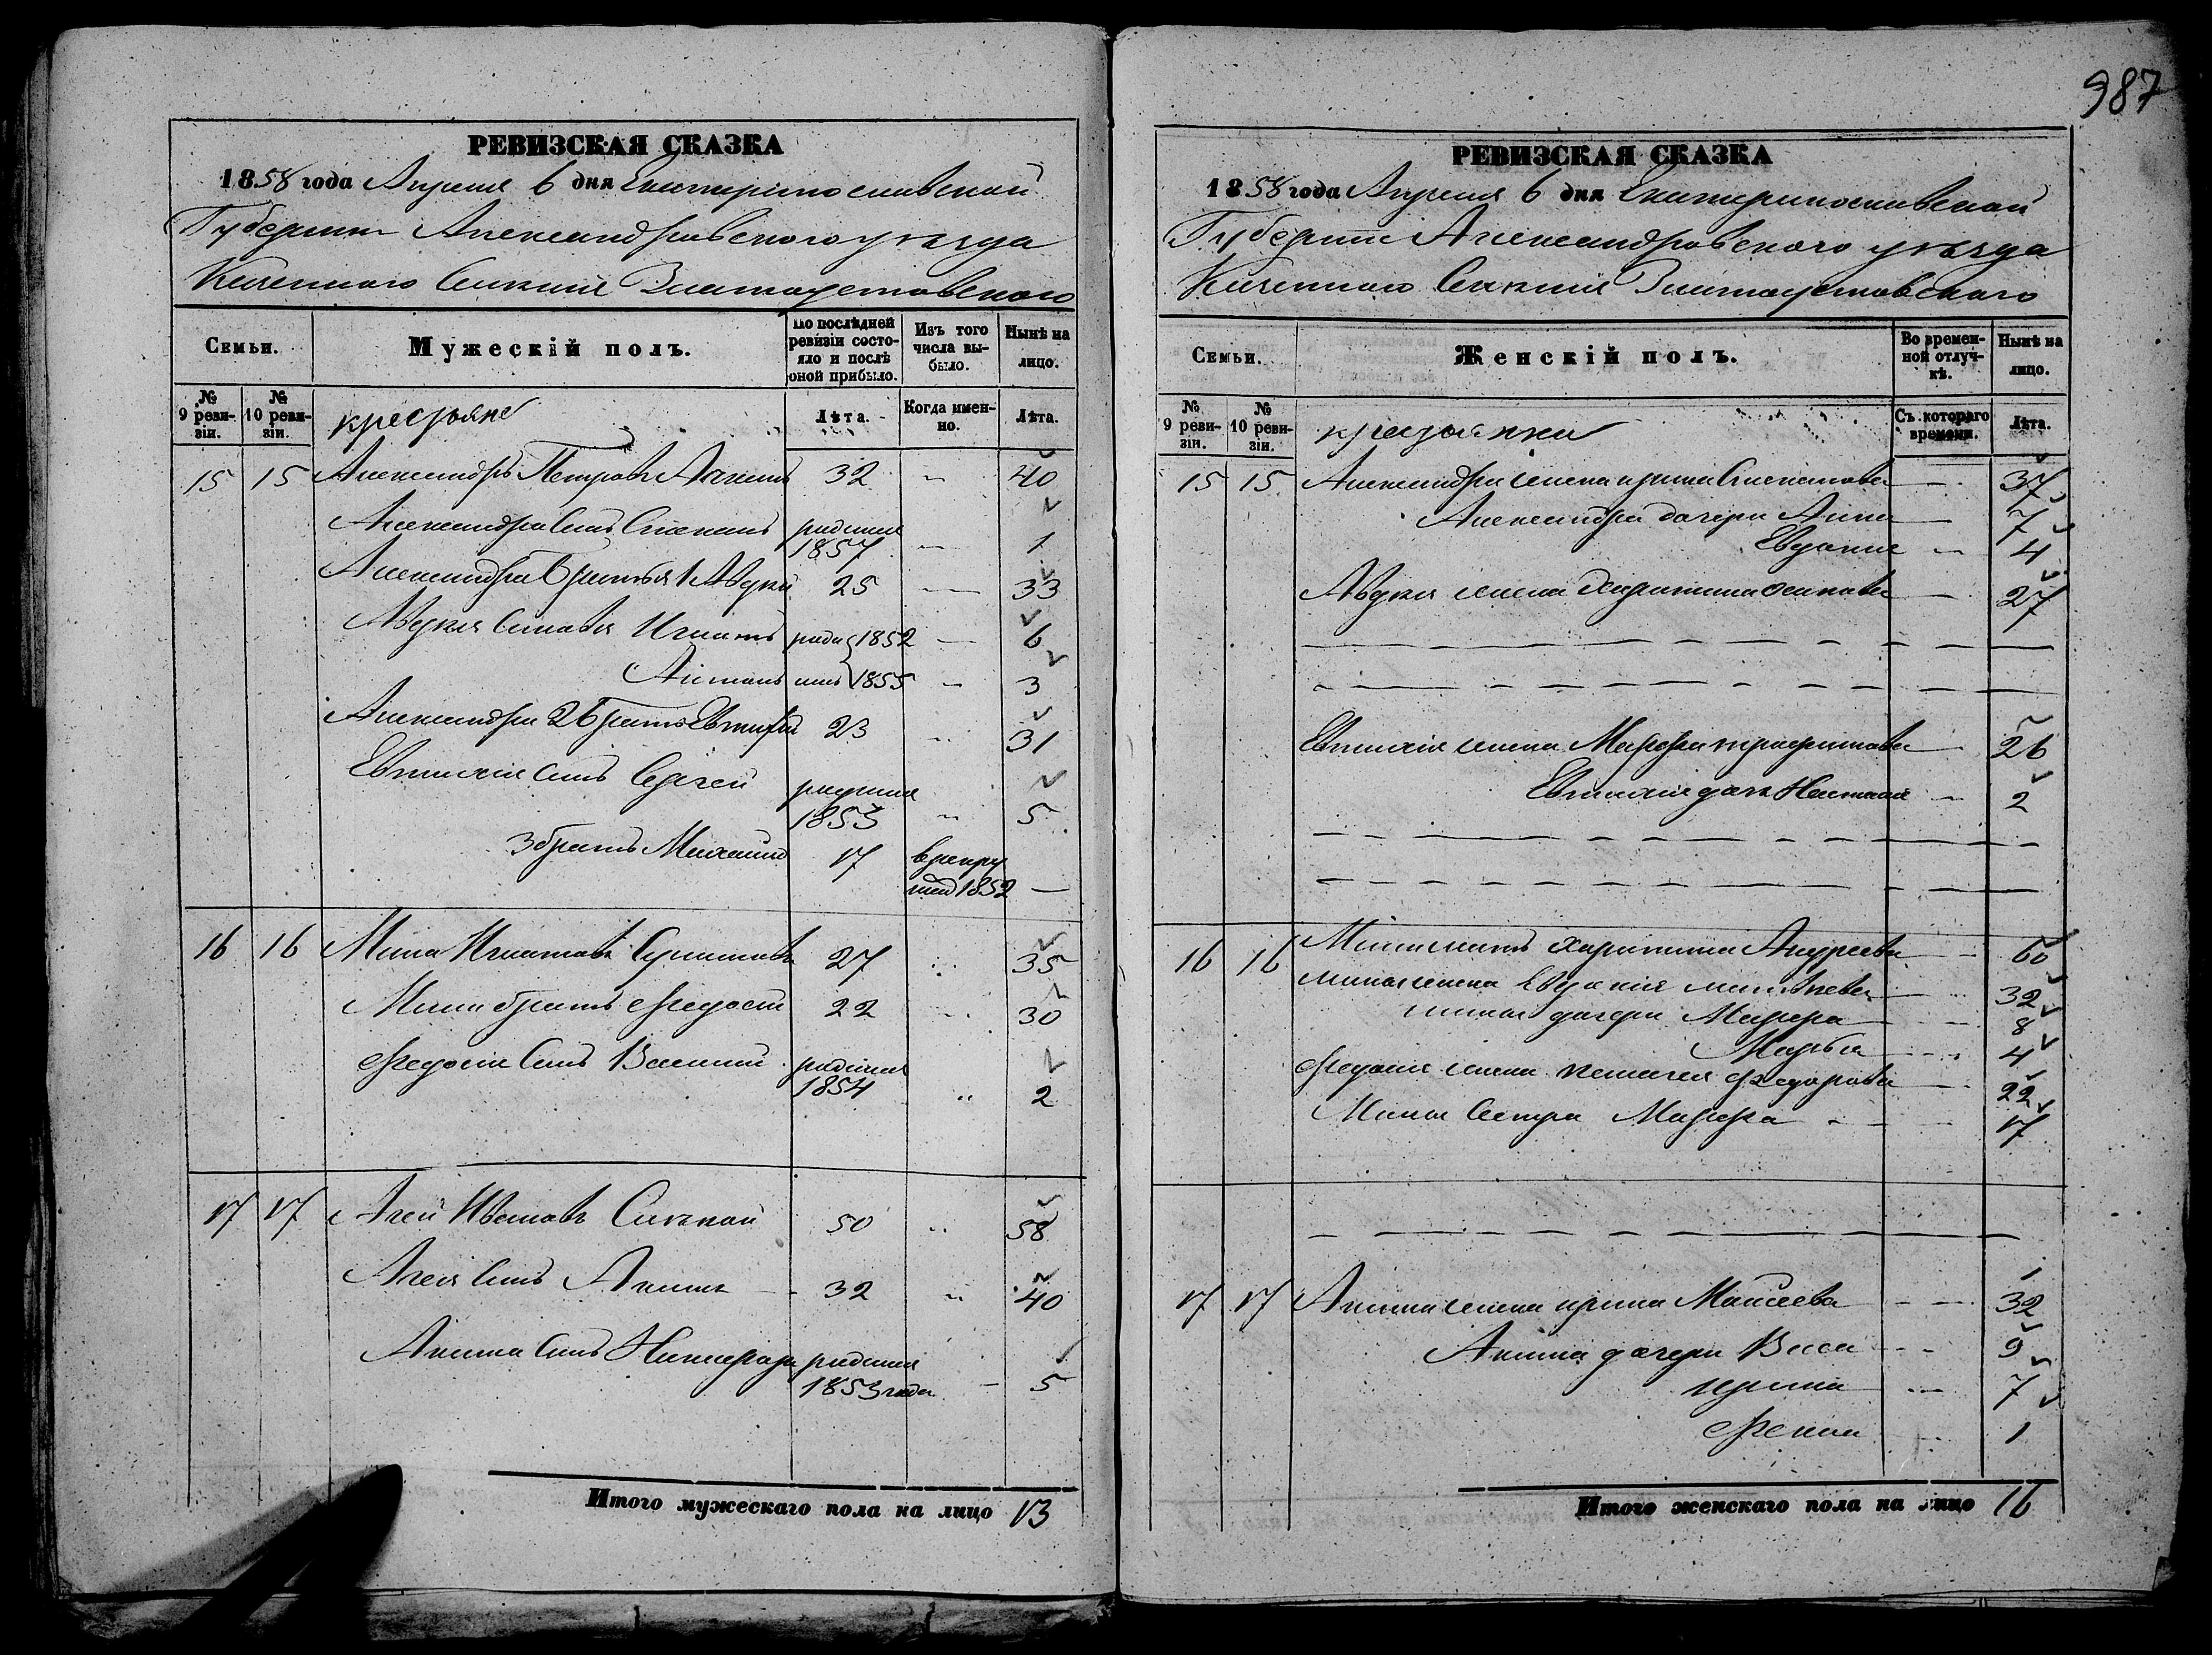 987
РЕВИЗСКАЯ СКАЗКА
1858 года Апреля 6 дня Екатеринославской
Губернии Александровского уезда
Казенного Селения Златоустовского
Семьи.
Мужескій полъ.
По послѣдней ревизіи состояло и послѣ оной прибыло.
Изъ того числа выбыло.
Нынѣ на лицо.
№ 9 ревизіи.
№ 10 ревизіи.
крестьяне
Лѣта.
Когда именно.
Лѣта.
15 15 Александръ Петровъ 32 — 40
Александра Сынъ Степанъ родился 1857 — 1
Александра братья 1 Авдей 25 — 33
Авдея Сыновья Игнатъ роди 1852 — 6
лись 1855 — 3
Александра 2 братъ Евтифей 23 31
Евтифія Сынъ Сергей родился 1853 5
3 братъ Михаилъ 17 в рекру 1852 —
16 16 Мина Игнатовъ 27 35
Мины братъ Федосій 22 30
Федосія Сынъ Василий родился 1854 2
17 17 Агей Ивановъ 50 58
Агея Сынъ Акимъ 32 40
Акима Сынъ Никифоръ родился 1853 года — 5
Итого мужескаго пола на лицо 13
РЕВИЗСКАЯ СКАЗКА
1858 года Апреля 6 дня Екатеринославской
Губернии Александровского уезда
Казенного Селения Златоустовского
Семьи.
Женскій полъ.
Во временной отлучкѣ.
Нынѣ на лицо.
№ 9 ревизіи.
№ 10 ревизіи.
крестьянки
Съ котораго времени.
Лѣта.
15 15 Александра жена ирина — 37
Александра дочери Анна — 7
Евдокия — 4
Авдея жена Харитина Осипова — 27
Евтифія жена Марфа трофимова — 26
Евтифія дочь Наталия — 2
16 16 Мины мать Харитина Андреева — 60
мины жена Евдокия 32
мины дочери Марфа — 8
Марья — 4
Федосия жена пелагея Федорова — 22
Мины Сестра Марфа 17
17 17 Акима жена ирина Моисеева — 32
Акима дочери Васса 9
ирина 7
1
Итого женскаго пола на лицо 16